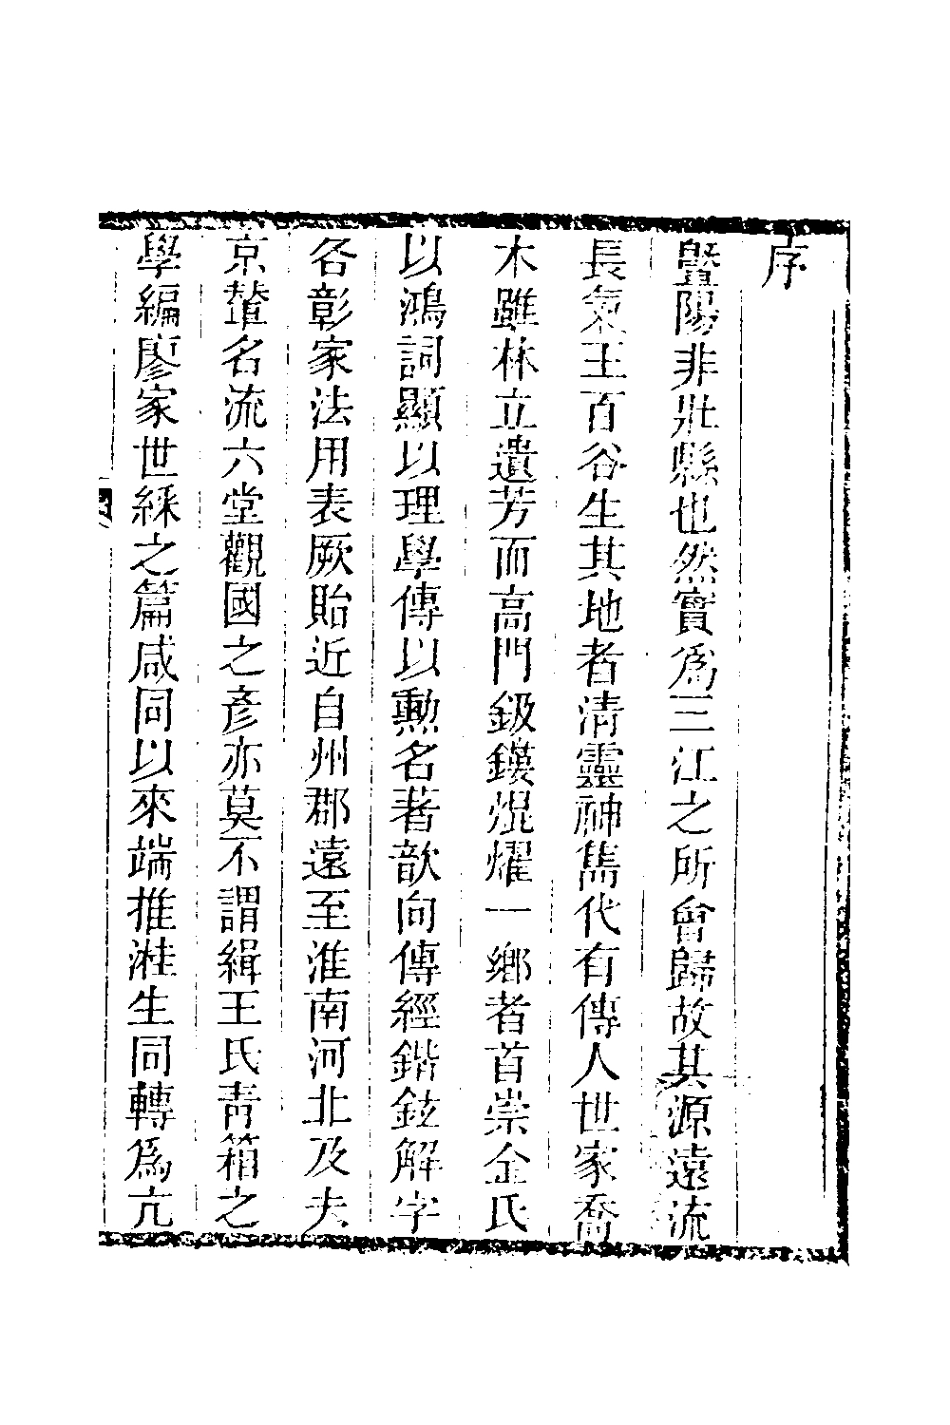 序
暨陽非壯縣也然實為三江之所會歸故其源遠流
長氣王百谷生其地者清靈神雋代有傳人世家喬
木雖林立遺芳而高門鈒鏤焜燿一鄉者首崇金氏
以鴻詞顯以理學傳以勳名著歆向傳經鍇鉉解字
各彰家法用表厥貽近自州郡遠至淮南河北及夫
京輦名流六堂觀國之彥亦莫不謂緝王氏青箱之
學編廖家世綵之篇咸同以來端推漄生同轉為亢